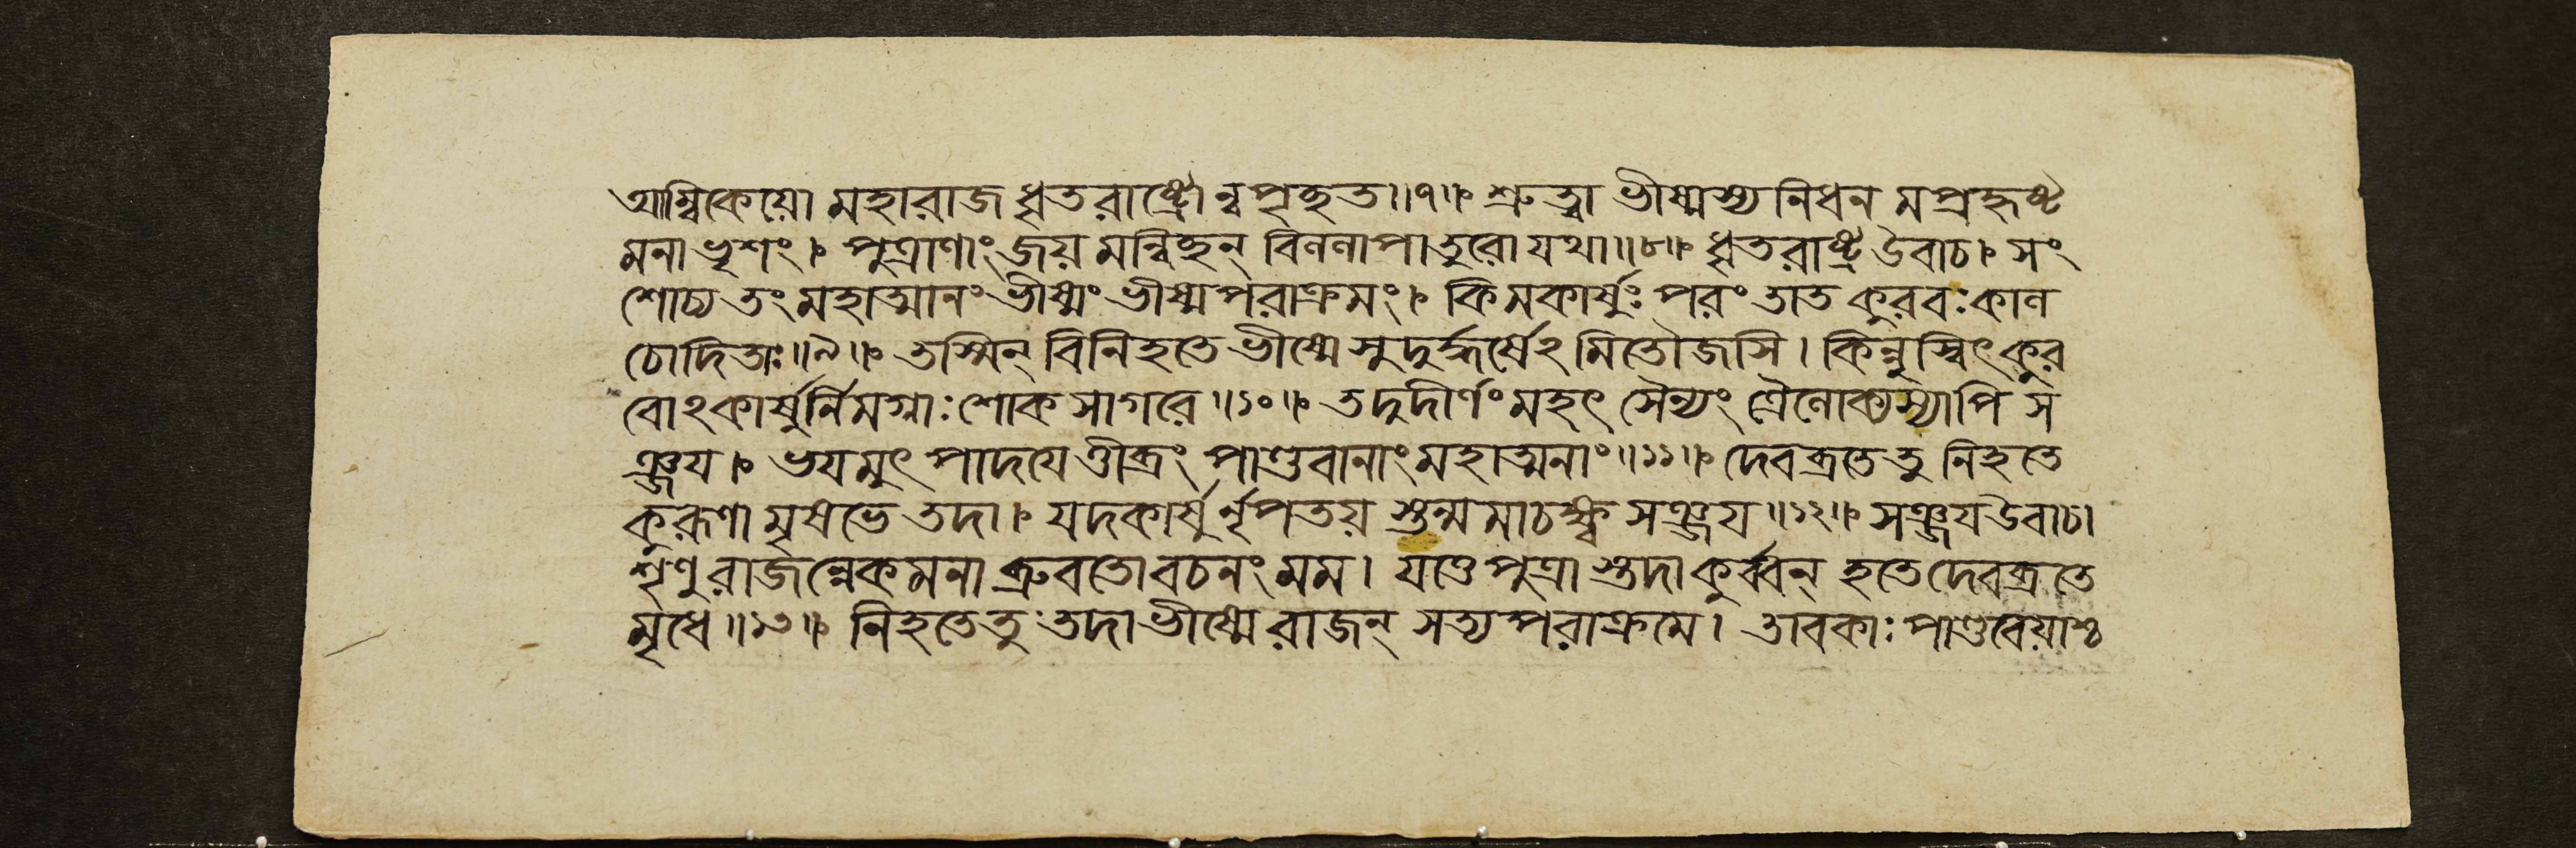 আম্বিকেয়ো মহারাজ ধৃতরাষ্ট্রোন্বপৃচ্ছত॥৭॥ শ্রুত্বা ভীষ্মস্য নিধন মপ্রহৃষ্ট
মনা ভৃশং। পুত্রাণাং জয় মন্বিচ্ছন্ বিললাপাতুরো যথা॥৮॥ ধৃতরাষ্ট্র উবাচ। সং
শোচ্য তং মহাত্মানং ভীষ্মং ভীষ্মপরাক্রমং। কিমকার্ষুঃ পরং তাত কুরবঃ কাল
চোদিতাঃ॥৯॥ তস্মিন্ বিনিহতে ভীষ্মে সুদুর্দ্ধর্ষেঽমিতৌজসি। কিন্নুস্বিৎ কুর
বোঽকার্ষুর্নিমগ্নাঃ শোকসাগরে॥১০॥ তদুদীর্ণং মহৎ সৈন্যং ত্রৈলোক্যস্যাপি স
ঞ্জয়। ভয়মুৎপাদয়েত্তীব্রং পাণ্ডবানাং মহাত্মনাং॥১১॥ দেবব্রতে তু নিহতে
কুরূণামৃষভে তদা। যদকার্ষুর্নৃপতয় স্তন্মমাচক্ষ্ব সঞ্জয়॥১২॥ সঞ্জয় উবাচ।
শৃণু রাজন্নেকমনা ব্রুবতো বচনং মম। যত্তে পুত্রা স্তদাকুর্ব্বন্ হতে দেবব্রতে
মৃধে॥১৩॥ নিহতে তু তদা ভীষ্মে রাজন্ সত্যপরাক্রমে। তাবকাঃ পাণ্ডবেয়াশ্চ